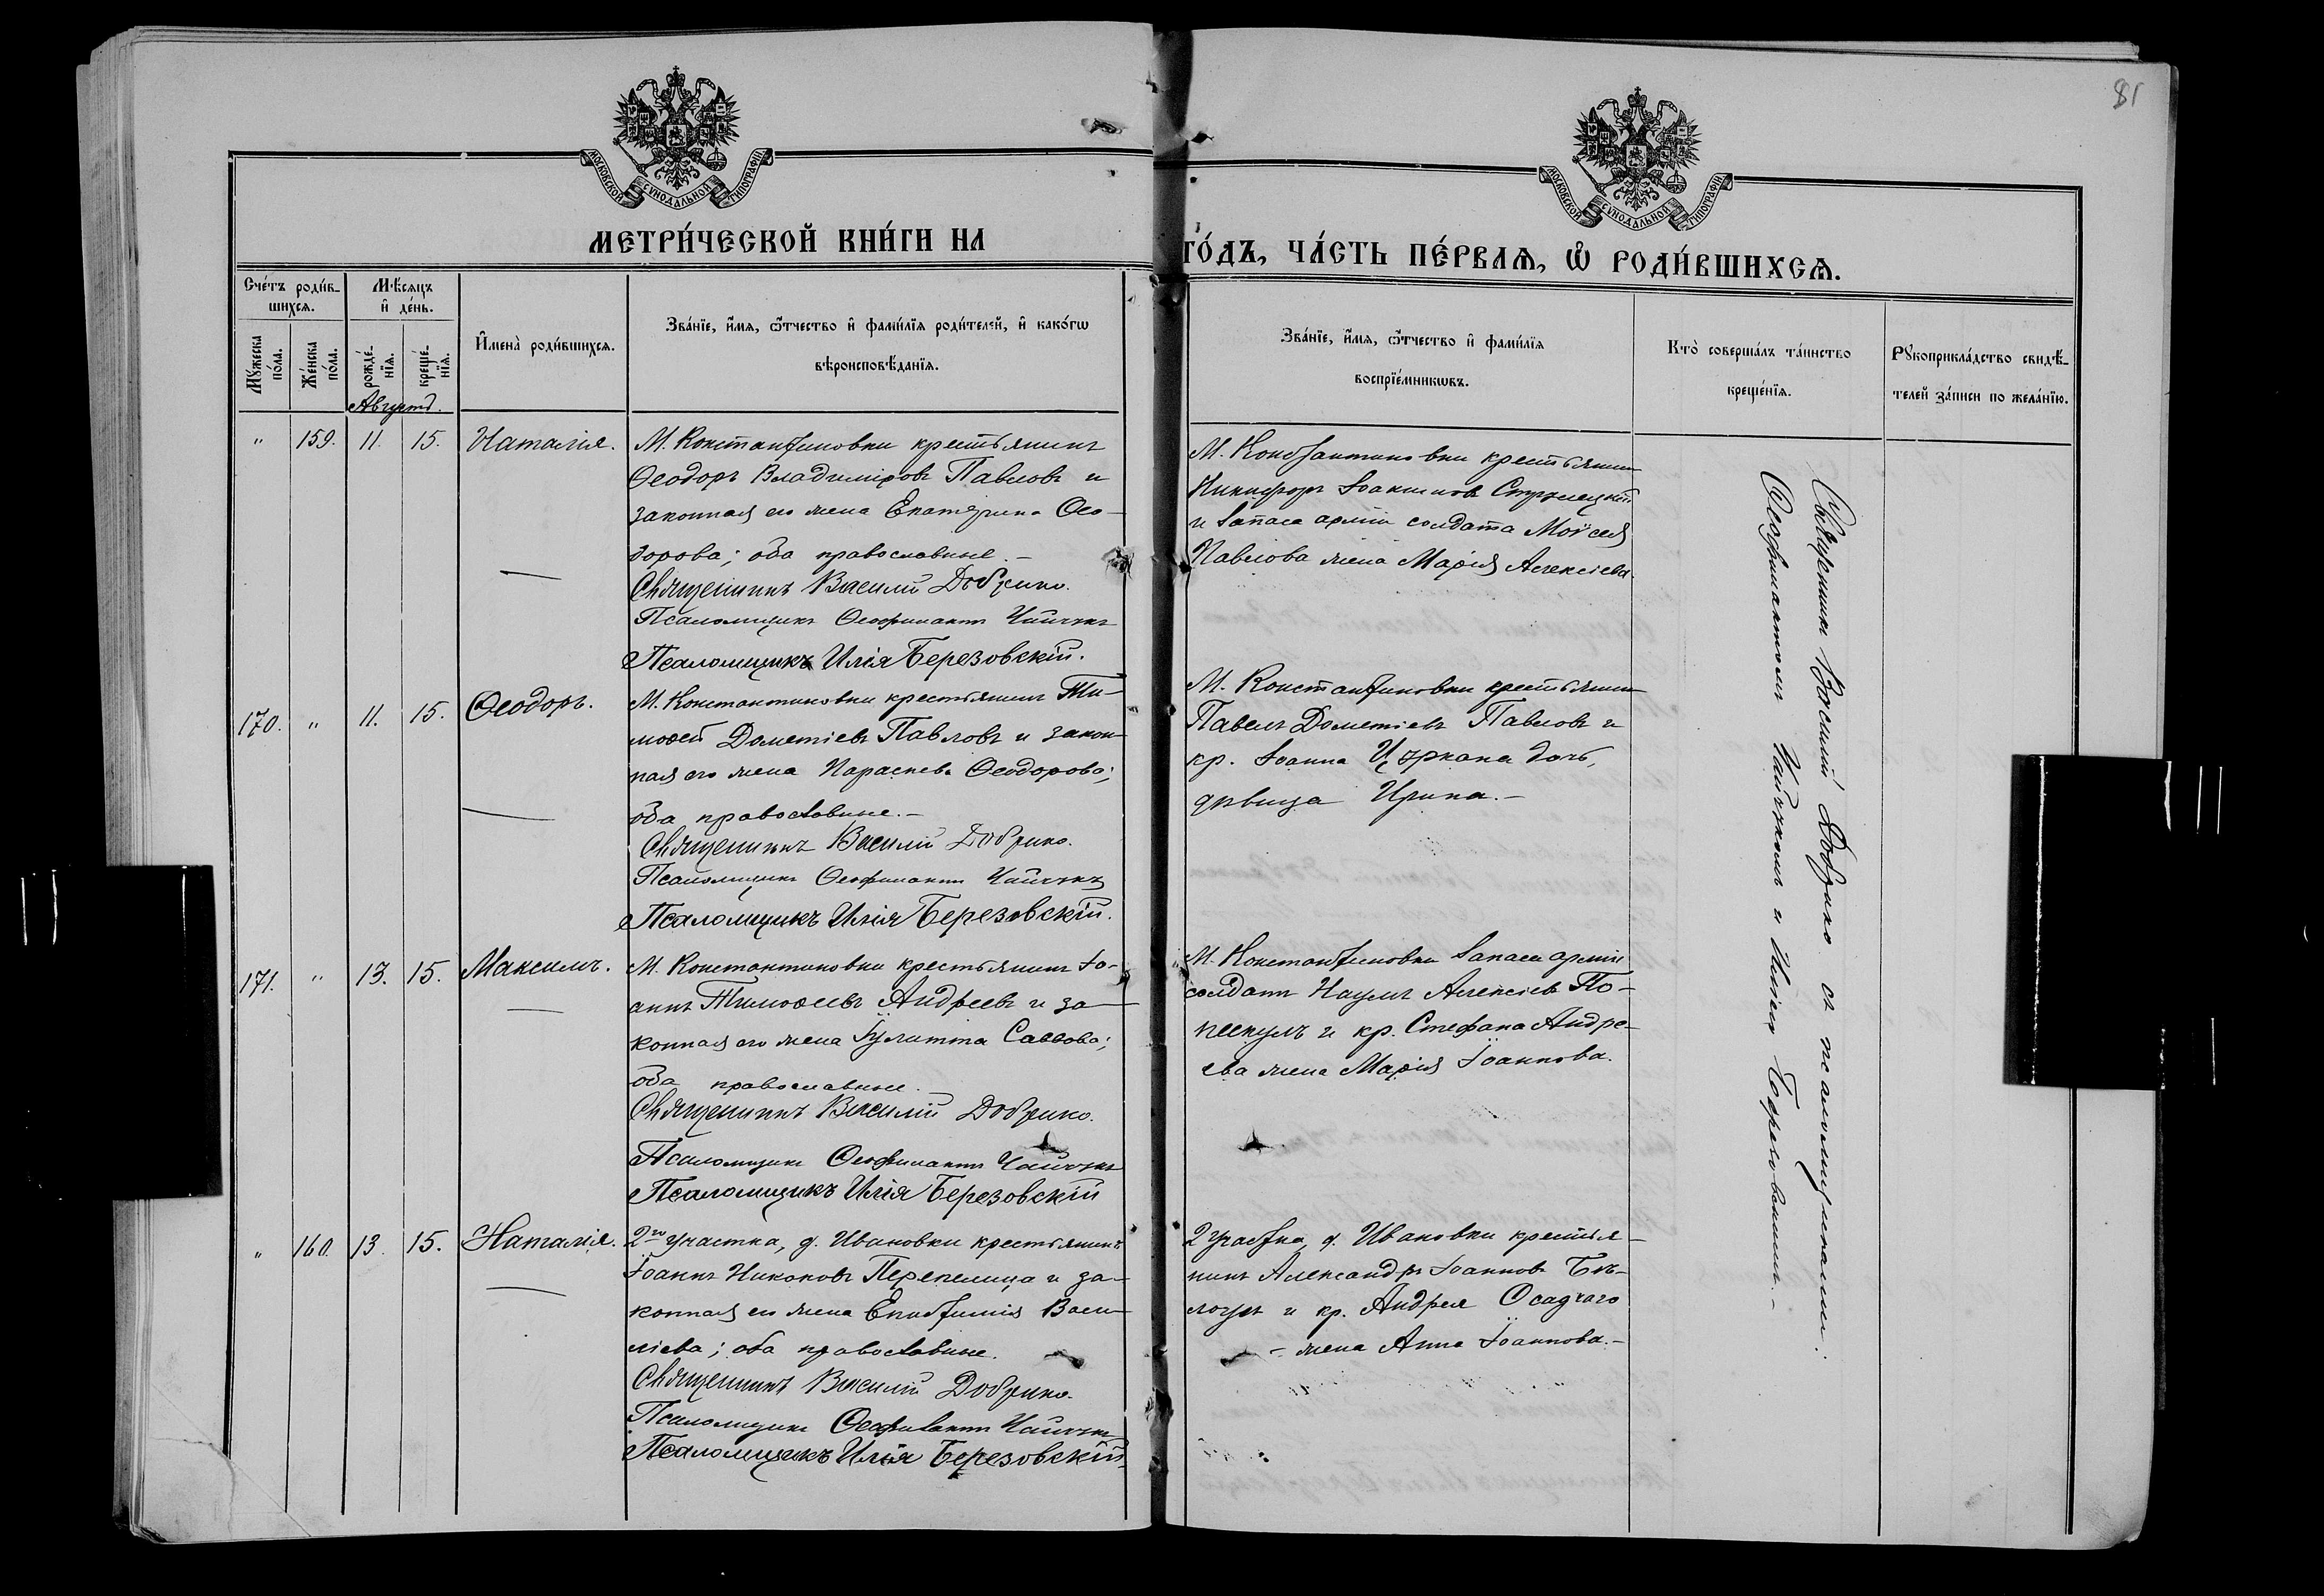 81
МОСКОВСКОЙ СѴНОДАЛЬНОЙ ТИПОГРАФІИ
МОСКОВСКОЙ СѴНОДАЛЬНОЙ ТИПОГРАФІИ
МЕТРИ́ЧЕСКОЙ КНИ́ГИ НА
ГО́ДЪ, ЧА́СТЬ ПЕ́РВАѦ, Ѡ҆ РОДИ́ВШИХСѦ.
Сче́тъ роди́в-
шихсѧ.
Мꙋ́жеска по́ла.
Же́нска по́ла.
Мѣ́сѧцъ
и҆ де́нь.
рожде́-нїѧ.
креще́-нїѧ.
И҆мена̀ роди́вшихсѧ.
Зва́нїе, и҆́мѧ, ѻ҆́тчество и҆ фами́лїѧ роди́телей, и҆ како́гѡ
вѣроисповѣ́данїѧ.
Зва́нїе, и҆́мѧ, ѻ҆́тчество и҆ фами́лїѧ
воспрїе́мникѡвъ.
Кто̀ соверша́лъ та́инство
креще́нїѧ.
Рꙋкоприкла́дство свидѣ́-
телей за́писи по жела́нїю.
Августъ.
" 159. 11. 15. Наталія.
М. Константиновки крестьянинъ
Ѳеодоръ Владиміровъ Павловъ и
законная его жена Екатерина Ѳео-
дорова; оба православные.-
Священникъ Василій Добрико.
Псаломщикъ Ѳеофилактъ
Псаломщикъ Илія Березовскій.
М. Константиновки крестьянинъ
Никифоръ Іоакимовъ Стрѣлецкій
и запаса арміи солдата Моѵсея
Павлова жена Марія Алексіева.
170. " 11. 15. Ѳеодоръ.
М. Константиновки крестьянинъ Ти-
моѳей Дометіевъ Павловъ и закон-
ная его жена Параскева Ѳеодорова;
оба православные.-
Священникъ Василій Добрико.
Псаломщикъ Ѳеофилактъ
Псаломщикъ Илія Березовскій.
М. Константиновки крестьянинъ
Павелъ Дометіевъ Павловъ и
кр. Іоанна дочь,
дѣвица Ирина.-
171. " 13. 15. Максимъ.
М. Константиновки крестьянинъ Іо-
аннъ Тимоѳеевъ Андреевъ и за-
конная его жена Іулитта Саввова;
оба православные.-
Священникъ Василій Добрико.
Псаломщикъ Ѳеофилактъ
Псаломщикъ Илія Березовскій
М. Константиновки запаса арміи
солдатъ Наумъ Алексіевъ По-
пескулъ и кр. Стефана Андре-
ева жена Марія Іоаннова.
" 160. 13. 15. Наталія.
2го участка, д. Ивановки крестьянинъ
Іоаннъ Никоновъ Перепелица и за-
конная его жена Епистимія Васи-
ліева; оба православные.
Священникъ Василій Добрико.
Псаломщикъ Ѳеофилактъ
Псаломщикъ Илія Березовскій.
2 участка, д. Ивановки крестья-
нинъ Александръ Іоанновъ Бѣ-
лоусъ и кр. Андрея Осадчаго
- жена Анна Іоаннова.-
Священникъ Василій Добрико съ псаломщиками:
Ѳеофилактомъ и Иліею Березовскимъ.-